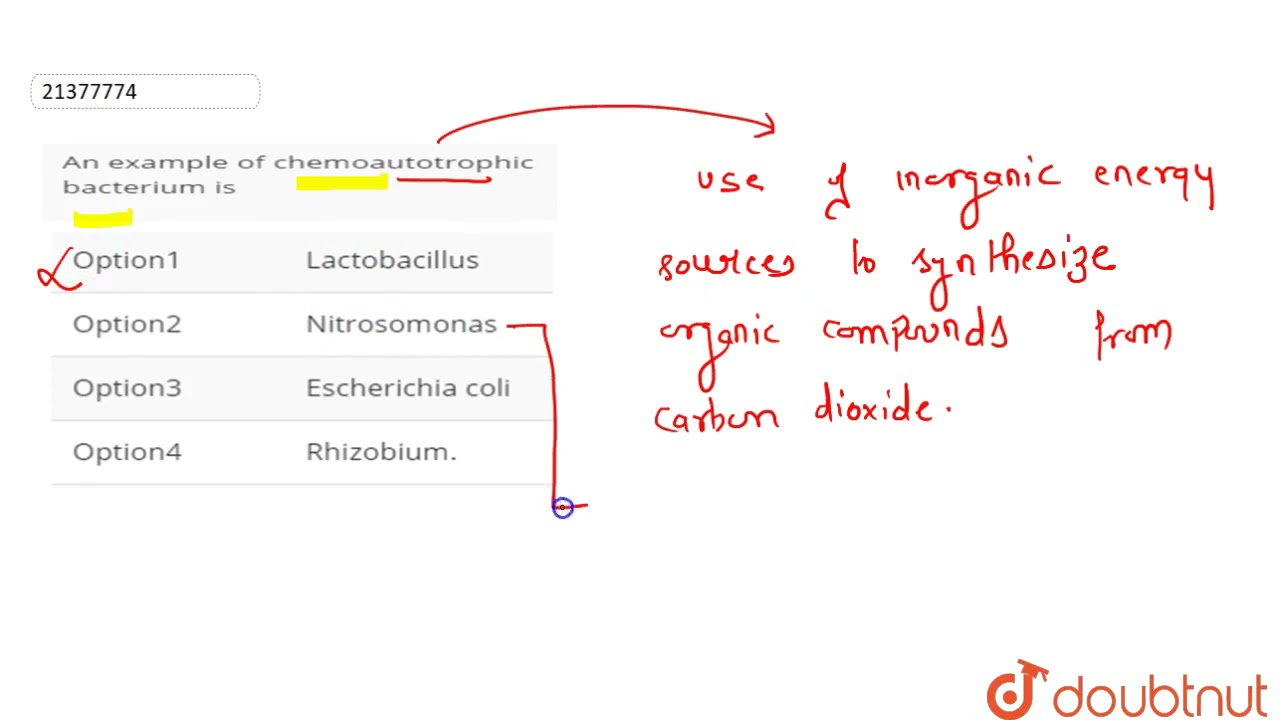 21377774
An example of chemoautotrophic
bacterium is
Option1 Lactobacillus
Option2 Nitrosomonas
Option3 Escherichia coli
Option4 Rhizobium.
use of inorganic energy
sources to synthesize
organic compounds from
carbon dioxide.
doubtnut